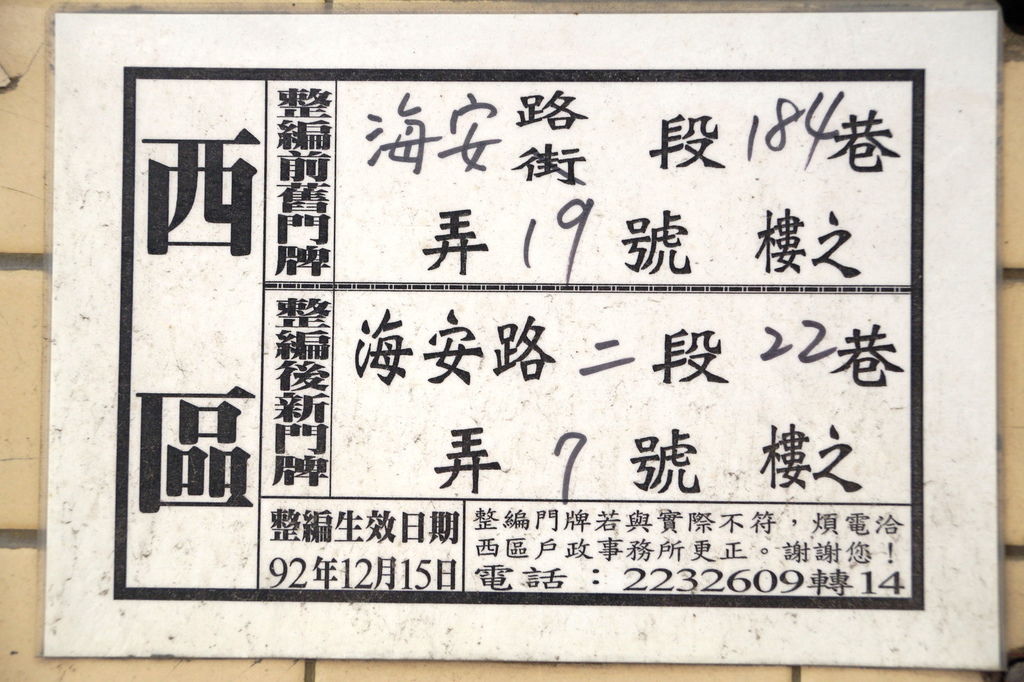 西區
整編前舊門牌
海安路街 段184巷
弄19號 樓之
整編後新門牌
海安路二段22巷
弄7號 樓之
整編生效日期
92年12月15日
整編門牌若與實際不符，煩電洽
西區戶政事務所更正。謝謝您！
電話：2232609轉14